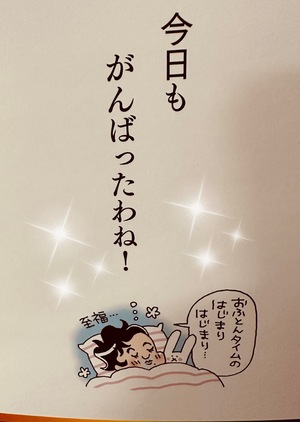 今日も
がんばったわね！
おふとんタイムの
はじまり
はじまり…
至福…